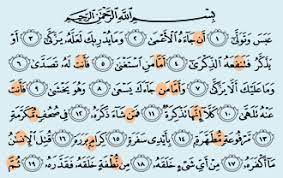 بِسْمِ ٱللَّهِ ٱلرَّحْمَٰنِ ٱلرَّحِيمِ
عَبَسَ وَتَوَلَّىٰٓ ١ أَن جَآءَهُ ٱلْأَعْمَىٰ ٢ وَمَا يُدْرِيكَ لَعَلَّهُۥ يَزَّكَّىٰٓ ٣ أَوْ
يَذَّكَّرُ فَتَنفَعَهُ ٱلذِّكْرَىٰٓ ٤ أَمَّا مَنِ ٱسْتَغْنَىٰ ٥ فَأَنتَ لَهُۥ تَصَدَّىٰ ٦
وَمَا عَلَيْكَ أَلَّا يَزَّكَّىٰ ٧ وَأَمَّا مَن جَآءَكَ يَسْعَىٰ ٨ وَهُوَ يَخْشَىٰ ٩ فَأَنتَ
عَنْهُ تَلَهَّىٰ ١٠ كَلَّآ إِنَّهَا تَذْكِرَةٌ ١١ فَمَن شَآءَ ذَكَرَهُۥ ١٢ فِى صُحُفٍ مُّكَرَّمَةٍ
١٣ مَّرْفُوعَةٍ مُّطَهَّرَةٍۭ ١٤ بِأَيْدِى سَفَرَةٍ ١٥ كِرَامٍۭ بَرَرَةٍ ١٦ قُتِلَ ٱلْإِنسَٰنُ
مَآ أَكْفَرَهُۥ ١٧ مِنْ أَىِّ شَىْءٍ خَلَقَهُۥ ١٨ مِن نُّطْفَةٍ خَلَقَهُۥ فَقَدَّرَهُۥ ١٩ ثُمَّ